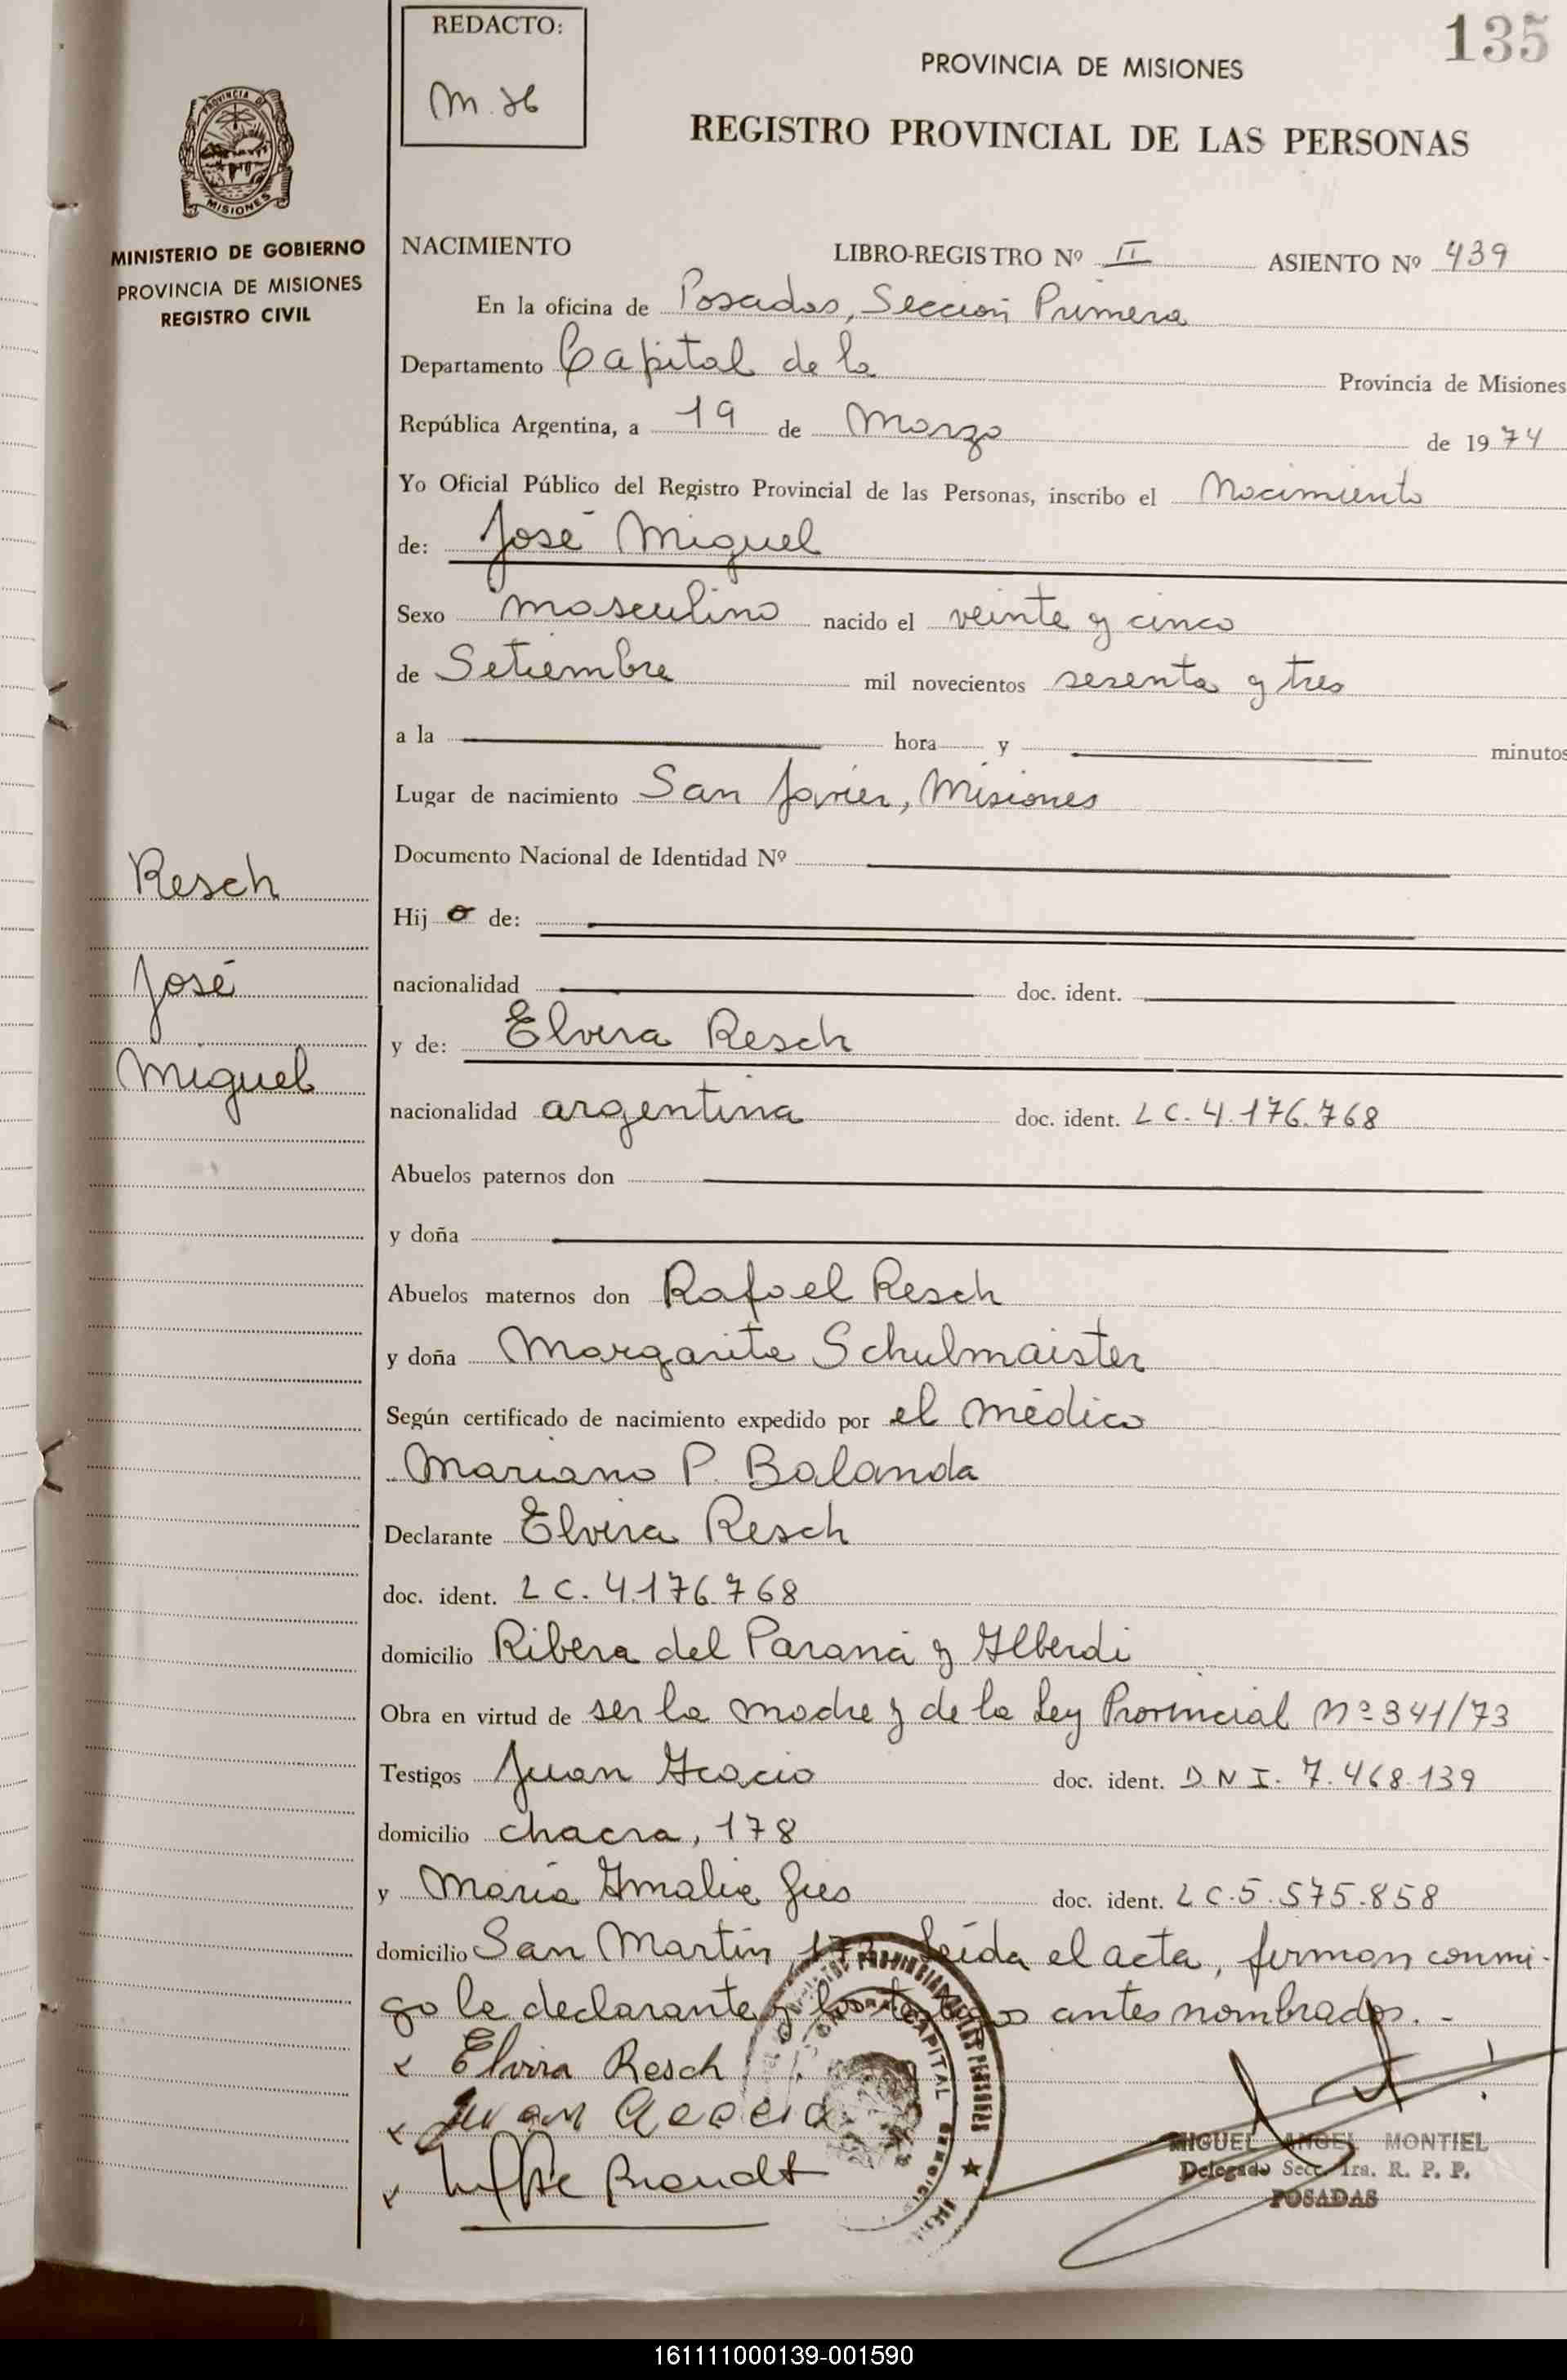 135
REDACTO:
M. H
PROVINCIA DE MISIONES
REGISTRO PROVINCIAL DE LAS PERSONAS
PROVINCIA DE
MISIONES
MINISTERIO DE GOBIERNO
PROVINCIA DE MISIONES
REGISTRO CIVIL
NACIMIENTO LIBRO-REGISTRO Nº II ASIENTO Nº 439
En la oficina de Posadas, Sección Primera
Departamento Capital de la Provincia de Misiones
República Argentina, a 19 de Marzo de 1974
Yo Oficial Público del Registro Provincial de las Personas, inscribo el Nacimiento
de: José Miguel
Sexo masculino nacido el veinte y cinco
de Setiembre mil novecientos sesenta y tres
a la hora y minutos
Lugar de nacimiento San Javier, Misiones
Documento Nacional de Identidad Nº
Resch
Hij o de:
José
nacionalidad doc. ident.
y de: Elvira Resch
Miguel
nacionalidad argentina doc. ident. LC. 4.176.768
Abuelos paternos don
y doña
Abuelos maternos don Rafael Resch
y doña Margarita Schulmaister
Según certificado de nacimiento expedido por el médico
Mariano P. Balanda
Declarante Elvira Resch
doc. ident. LC. 4.176.768
domicilio Ribera del Paraná y Alberdi
Obra en virtud de ser la madre y de la Ley Provincial nº 341/73
Testigos Juan Acacio doc. ident. D N I. 7.468.139
domicilio chacra, 178
y María Amalia doc. ident. LC. 5.575.858
domicilio San Martín Leída el acta, firman conmi-
go la declarante y los testigos antes nombrados. -
x Elvira Resch
x Juan
x Brandt
CAPITAL
MIGUEL ANGEL MONTIEL
Delegado Secc. 1ra. R. P. P.
POSADAS
161111000139-001590